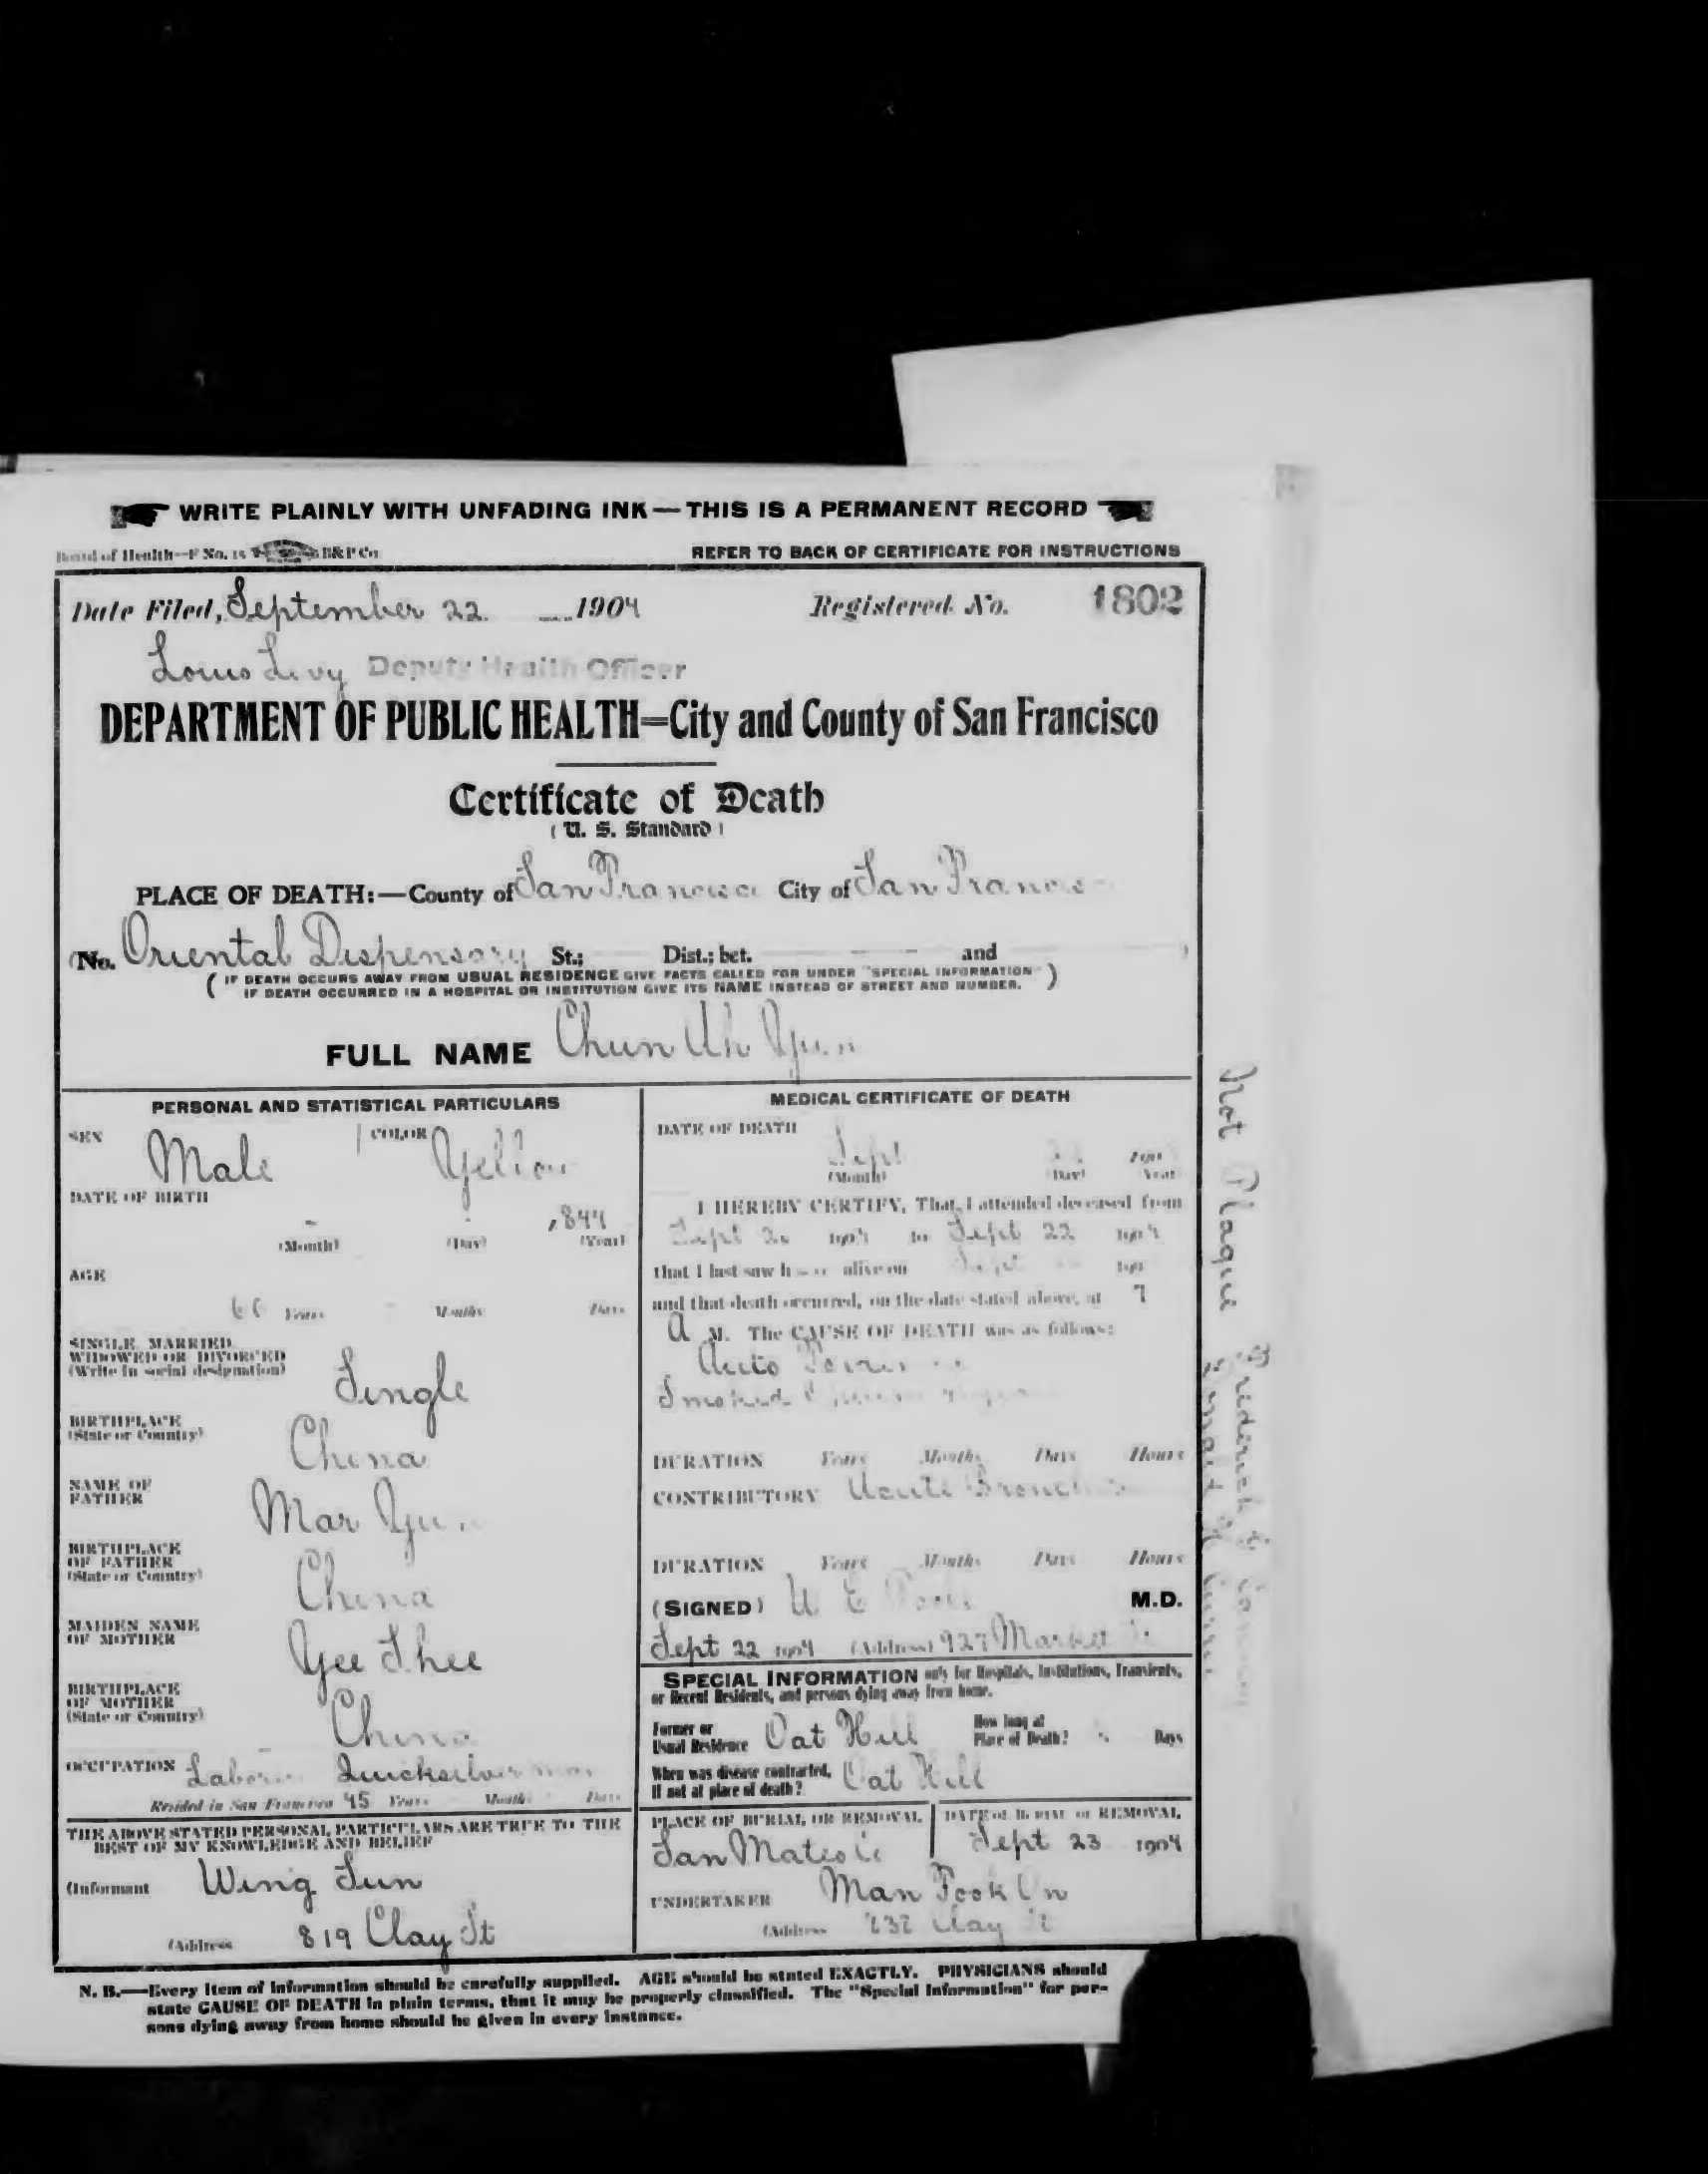 WRITE PLAINLY WITH UNFADING INK—THIS IS A PERMANENT RECORD
Board of Health—F No. 15 B&P Co
REFER TO BACK OF CERTIFICATE FOR INSTRUCTIONS
Date Filed, September 22 1904 Registered No. 1802
Louis Levy Deputy Health Officer
DEPARTMENT OF PUBLIC HEALTH=City and County of San Francisco
Certificate of Death
(U. S. Standard)
PLACE OF DEATH:—County of San Francisco City of San Francisco
(No. Oriental Dispensary St.; Dist.; bet. and
( IF DEATH OCCURS AWAY FROM USUAL RESIDENCE GIVE FACTS CALLED FOR UNDER "SPECIAL INFORMATION"
IF DEATH OCCURRED IN A HOSPITAL OR INSTITUTION GIVE ITS NAME INSTEAD OF STREET AND NUMBER. )
FULL NAME Chun Ah
PERSONAL AND STATISTICAL PARTICULARS
SEX Male COLOR Yellow
DATE OF BIRTH
- - 1844
(Month) (Day) (Year)
AGE
Years Months Days
SINGLE, MARRIED,
WIDOWED OR DIVORCED
(Write in social designation)
Single
BIRTHPLACE
(State or Country)
China
NAME OF
FATHER
Mar
BIRTHPLACE
OF FATHER
(State or Country)
China
MAIDEN NAME
OF MOTHER
Yee Shee
BIRTHPLACE
OF MOTHER
(State or Country)
China
OCCUPATION Laborer Quicksilver
Resided in San Francisco 45 Years Months Days
THE ABOVE STATED PERSONAL PARTICULARS ARE TRUE TO THE
BEST OF MY KNOWLEDGE AND BELIEF
(Informant Wing Sun
(Address 819 Clay St
MEDICAL CERTIFICATE OF DEATH
DATE OF DEATH
Sept 190
(Month) (Day) (Year)
I HEREBY CERTIFY, That I attended deceased from
Sept 1904 to Sept 22 1904
that I last saw h alive on Sept 190
and that death occurred, on the date stated above, at 7
A M. The CAUSE OF DEATH was as follows:
Auto
Smoked
DURATION Years Months Days Hours
CONTRIBUTORY Acute Bronchitis
DURATION Years Months Days Hours
(SIGNED) M.D.
Sept 22 1904 (Address) 927 Market St
SPECIAL INFORMATION only for Hospitals, Institutions, Transients,
or Recent Residents, and persons dying away from home.
Former or
Usual Residence Oat Hill
How long at
Place of Death? Days
When was disease contracted,
If not at place of death? Oat Hill
PLACE OF BURIAL OR REMOVAL DATE of BURIAL or REMOVAL
San Mateo Co Sept 23 1904
UNDERTAKER Man Fook On
(Address Clay St
Not Plague
N. B.—Every item of information should be carefully supplied. AGE should be stated EXACTLY. PHYSICIANS should
state CAUSE OF DEATH in plain terms, that it may be properly classified. The "Special Information" for per-
sons dying away from home should be given in every instance.